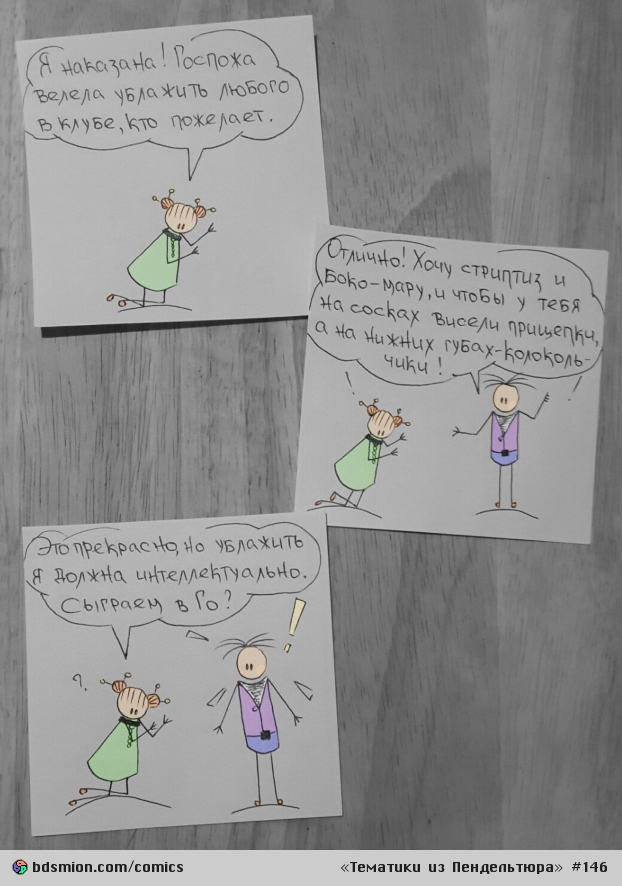 Я наказана! Госпожа
велела ублажить любого
в клубе, кто пожелает.
Отлично! Хочу стриптиз и
Боко-мару, и чтобы у тебя
на сосках висели прищепки,
а на нижних губах-колоколь-
чики!
Это прекрасно, но ублажить
я должна интеллектуально.
Сыграем в Го?
?,
!
bdsmion.com/comics
«Тематики из Пендельтюра» #146